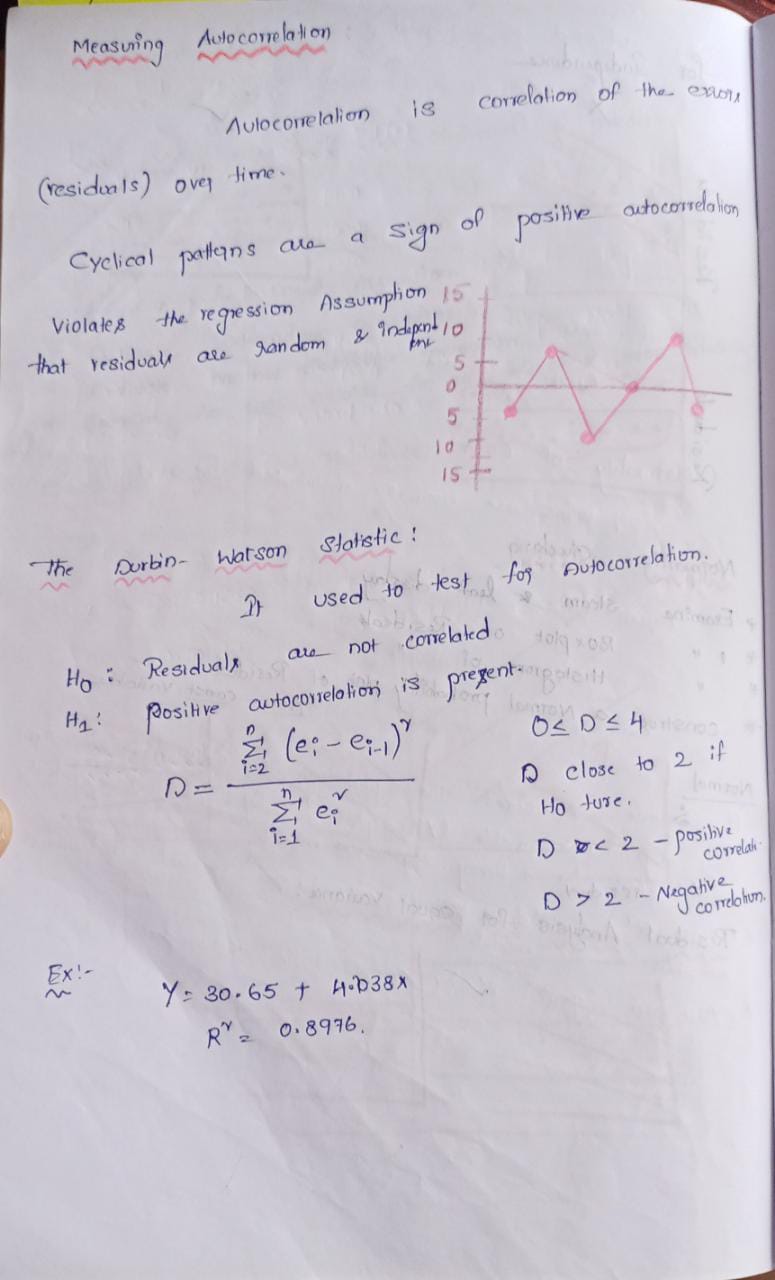 Measuring Autocorrelation
Autocorrelation is correlation of the errors
(residuals) over time.
Cyclical patterns are a sign of positive autocorrelation
Violates the regression Assumption
that residuals are random & Independent
15
10
5
0
5
10
15
The Durbin-Watson Statistic:
It used to test for Autocorrelation.
H₀: Residuals are not correlated
H₁: positive autocorrelation is present.
D = Σ_{i=2}^{n} (eᵢ - eᵢ₋₁)² / Σ_{i=1}^{n} eᵢ²
0 ≤ D ≤ 4
D close to 2 if
H₀ ture.
D < 2 - positive
correlati
D > 2 - Negative
correlation.
Ex:-
Y = 30.65 + 4.038x
R² = 0.8976.